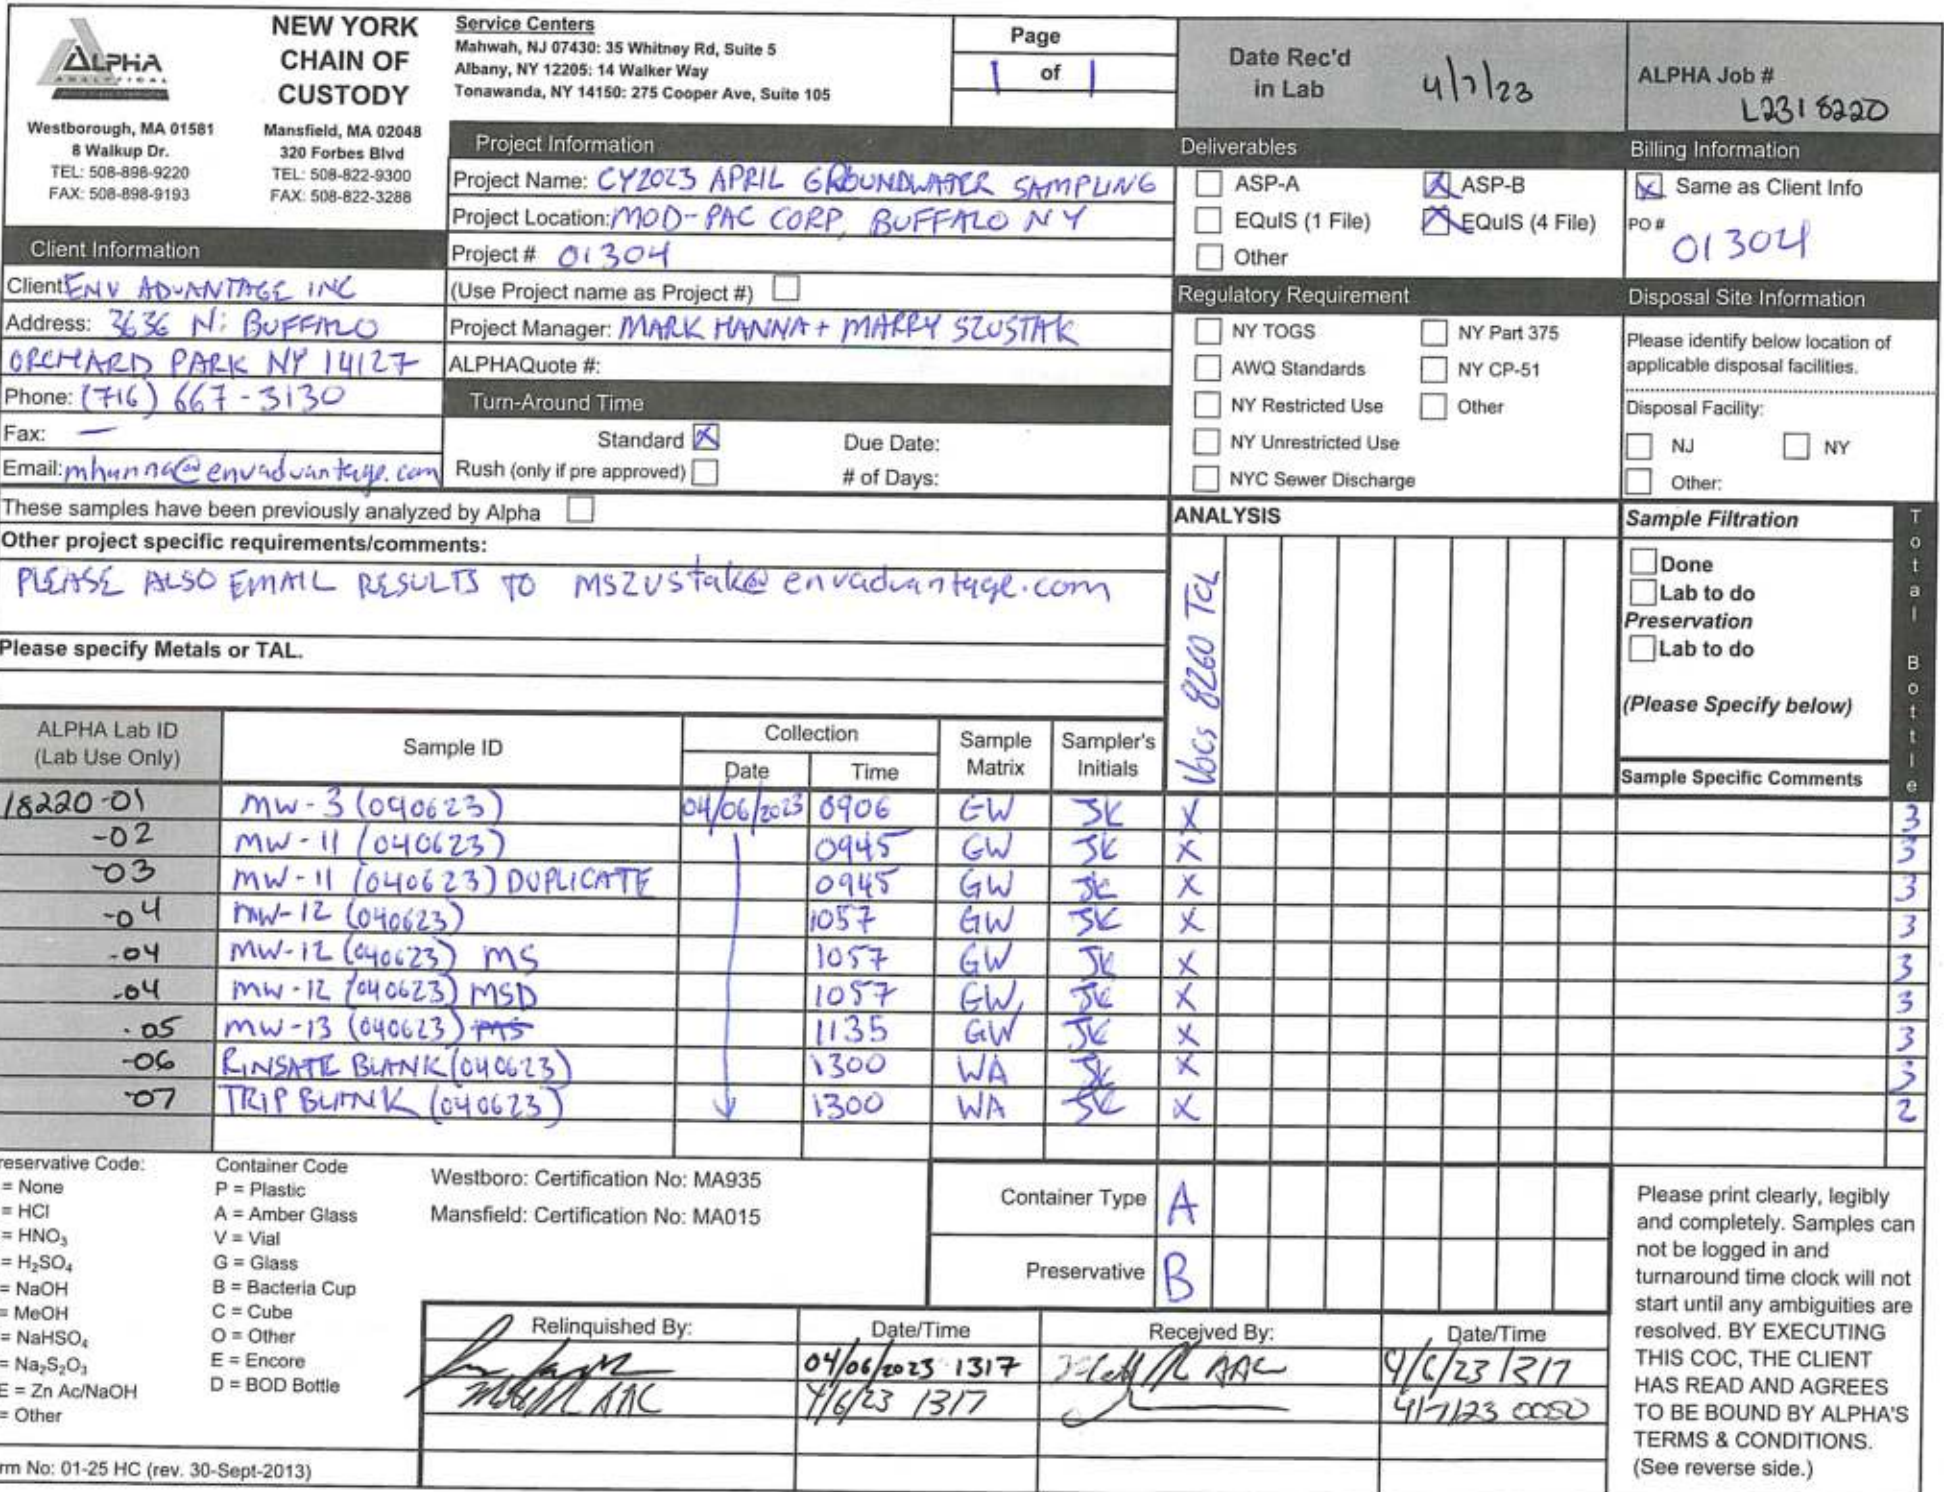 ALPHA
ANALYTICAL
NEW YORK
CHAIN OF
CUSTODY
Westborough, MA 01581
8 Walkup Dr.
TEL: 508-898-9220
FAX: 508-898-9193
Mansfield, MA 02048
320 Forbes Blvd
TEL: 508-822-9300
FAX: 508-822-3288
Service Centers
Mahwah, NJ 07430: 35 Whitney Rd, Suite 5
Albany, NY 12205: 14 Walker Way
Tonawanda, NY 14150: 275 Cooper Ave, Suite 105
Page
1 of 1
Date Rec'd
in Lab
4/7/23
ALPHA Job #
L2318220
Project Information
Project Name: CY2023 APRIL GROUNDWATER SAMPLING
Project Location: MOD-PAC CORP, BUFFALO NY
Project # 01304
(Use Project name as Project #)
Project Manager: MARK HANNA + MARRY SZUSTAK
ALPHAQuote #:
Deliverables
ASP-A
X ASP-B
EQuIS (1 File)
X EQuIS (4 File)
Other
Billing Information
X Same as Client Info
PO #
01304
Client Information
Client: ENV ADVANTAGE INC
Address: 3636 N. BUFFALO
ORCHARD PARK NY 14127
Phone: (716) 667-3130
Fax: —
Email: mhanna@envadvantage.com
Turn-Around Time
Standard X
Due Date:
Rush (only if pre approved)
# of Days:
Regulatory Requirement
NY TOGS
NY Part 375
AWQ Standards
NY CP-51
NY Restricted Use
Other
NY Unrestricted Use
NYC Sewer Discharge
Disposal Site Information
Please identify below location of
applicable disposal facilities.
Disposal Facility:
NJ NY
Other:
These samples have been previously analyzed by Alpha
Other project specific requirements/comments:
PLEASE ALSO EMAIL RESULTS TO mszustak@envadvantage.com
Please specify Metals or TAL.
ANALYSIS
VOCs 8260 TCL
Sample Filtration
Done
Lab to do
Preservation
Lab to do
(Please Specify below)
Sample Specific Comments
Total Bottle
ALPHA Lab ID
(Lab Use Only)
Sample ID
Collection
Date Time
Sample
Matrix
Sampler's
Initials
18220-01 MW-3 (040623) 04/06/2023 0906 GW JK X 3
-02 MW-11 (040623) 0945 GW JK X 3
-03 MW-11 (040623) DUPLICATE 0945 GW JK X 3
-04 MW-12 (040623) 1057 GW JK X 3
-04 MW-12 (040623) MS 1057 GW JK X 3
-04 MW-12 (040623) MSD 1057 GW JK X 3
-05 MW-13 (040623) MS 1135 GW JK X 3
-06 RINSATE BLANK (040623) 1300 WA JK X 3
-07 TRIP BLANK (040623) 1300 WA JK X 2
reservative Code:
= None
= HCl
= HNO₃
= H₂SO₄
= NaOH
= MeOH
= NaHSO₄
= Na₂S₂O₃
E = Zn Ac/NaOH
= Other
Container Code
P = Plastic
A = Amber Glass
V = Vial
G = Glass
B = Bacteria Cup
C = Cube
O = Other
E = Encore
D = BOD Bottle
Westboro: Certification No: MA935
Mansfield: Certification No: MA015
Container Type A
Preservative B
Relinquished By: Date/Time Received By: Date/Time
04/06/2023 1317 AAC 4/6/23 1317
AAC 4/6/23 1317 4/7/23
Please print clearly, legibly
and completely. Samples can
not be logged in and
turnaround time clock will not
start until any ambiguities are
resolved. BY EXECUTING
THIS COC, THE CLIENT
HAS READ AND AGREES
TO BE BOUND BY ALPHA'S
TERMS & CONDITIONS.
(See reverse side.)
rm No: 01-25 HC (rev. 30-Sept-2013)